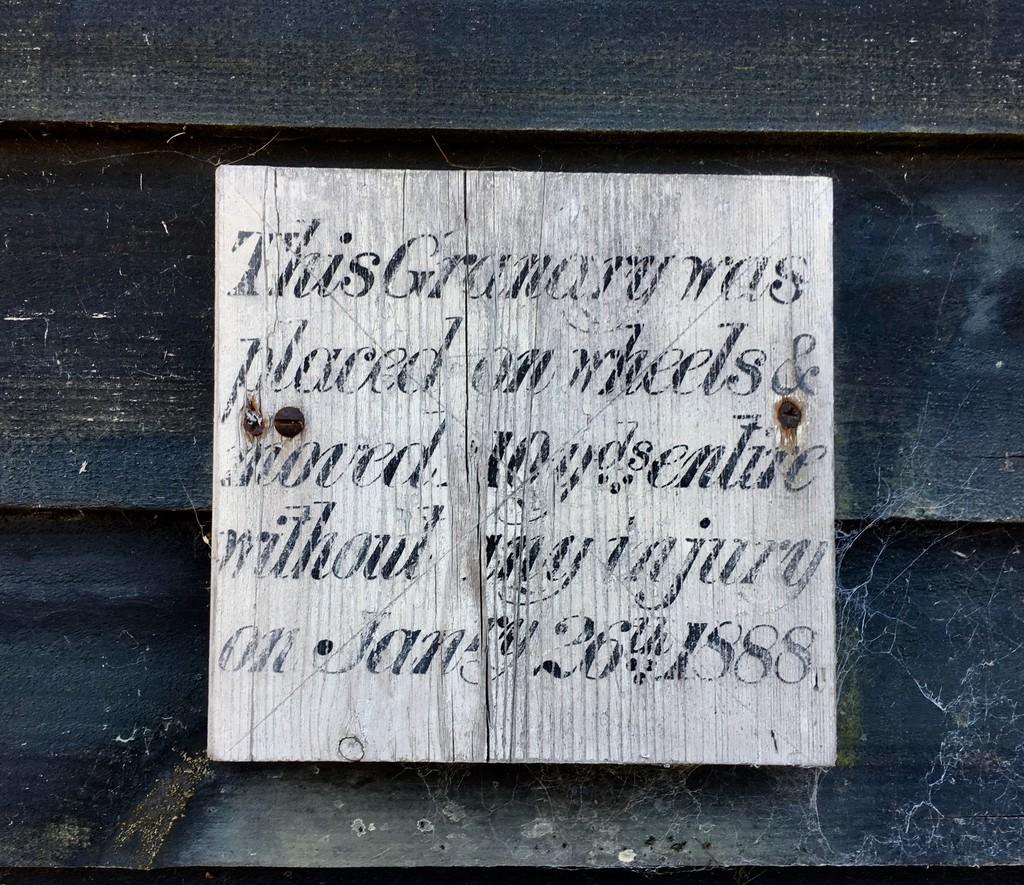 This Granary was
placed on wheels &
moved 10 yds entire
without any injury
on Jany 26th 1888.